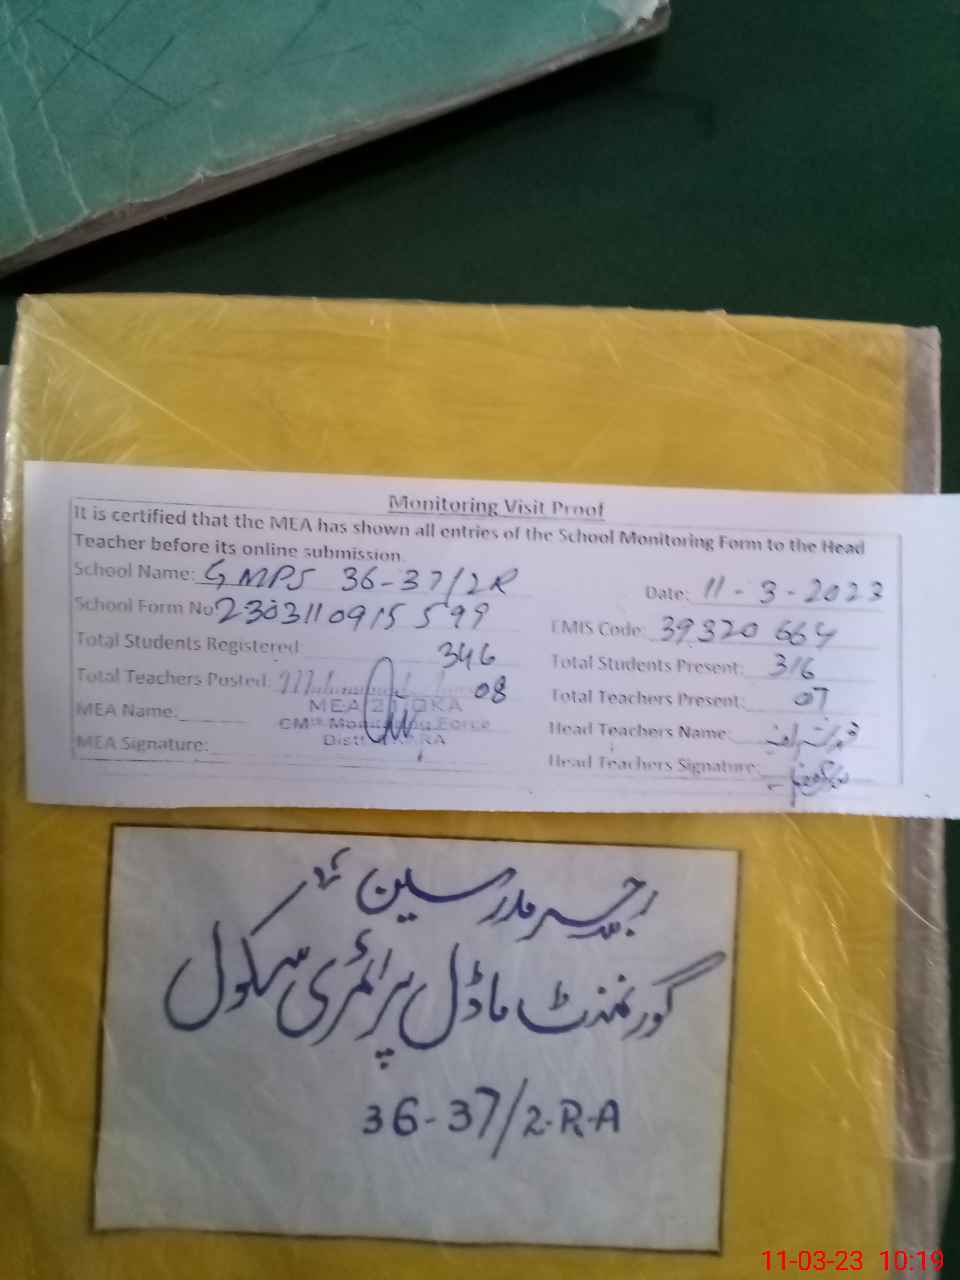 Monitoring Visit Proof
It is certified that the MEA has shown all entries of the School Monitoring Form to the Head
Teacher before its online submission.
School Name: GMPS 36-37/2R Date: 11-3-2023
School Form No 2303110915599 EMIS Code: 39320664
Total Students Registered: 346 Total Students Present: 316
Total Teachers Posted: 08 Total Teachers Present: 07
MEA Name: Head Teachers Name:
MEA Signature: Head Teachers Signature:
MEA OKA
CM Monitoring Force
رجسٹر مدرسین
گورنمنٹ ماڈل پرائمری سکول
36-37/2.R.A
11-03-23 10:19